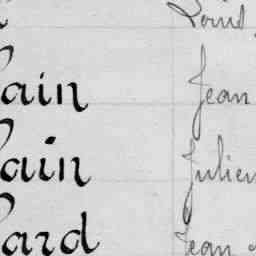 Louis
ain Jean
ain Julien
ard Jean